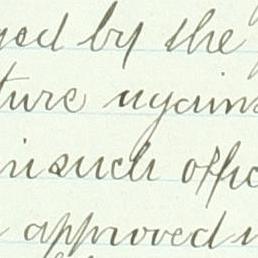 ged by the
ture against
in such offic
approved